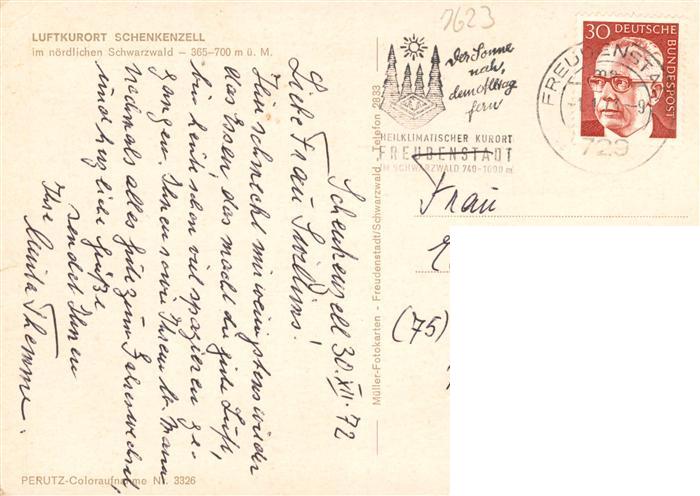 LUFTKURORT SCHENKENZELL
im nördlichen Schwarzwald – 365–700 m ü. M.
Schenkenzell 30.XII.72
Liebe Frau
Hier schmeckt mir wenigstens wieder
das Essen, das macht die gute Luft,
bin heute schon viel spazieren ge-
gangen, Ihnen sowie Ihrem lb. Mann
nochmals alles Gute zum Jahreswechsel,
und herzliche Grüße
sendet Ihnen
Ihre
PERUTZ-Coloraufnahme Nr. 3326
Müller-Fotokarten - Freudenstadt/Schwarzwald - Telefon 2833
7623
Der Sonne
nah,
dem Alltag
fern
HEILKLIMATISCHER KURORT
FREUDENSTADT
IM SCHWARZWALD 740-1000 m
FREUDENSTA
729
30 DEUTSCHE
BUNDESPOST
Frau
(75)